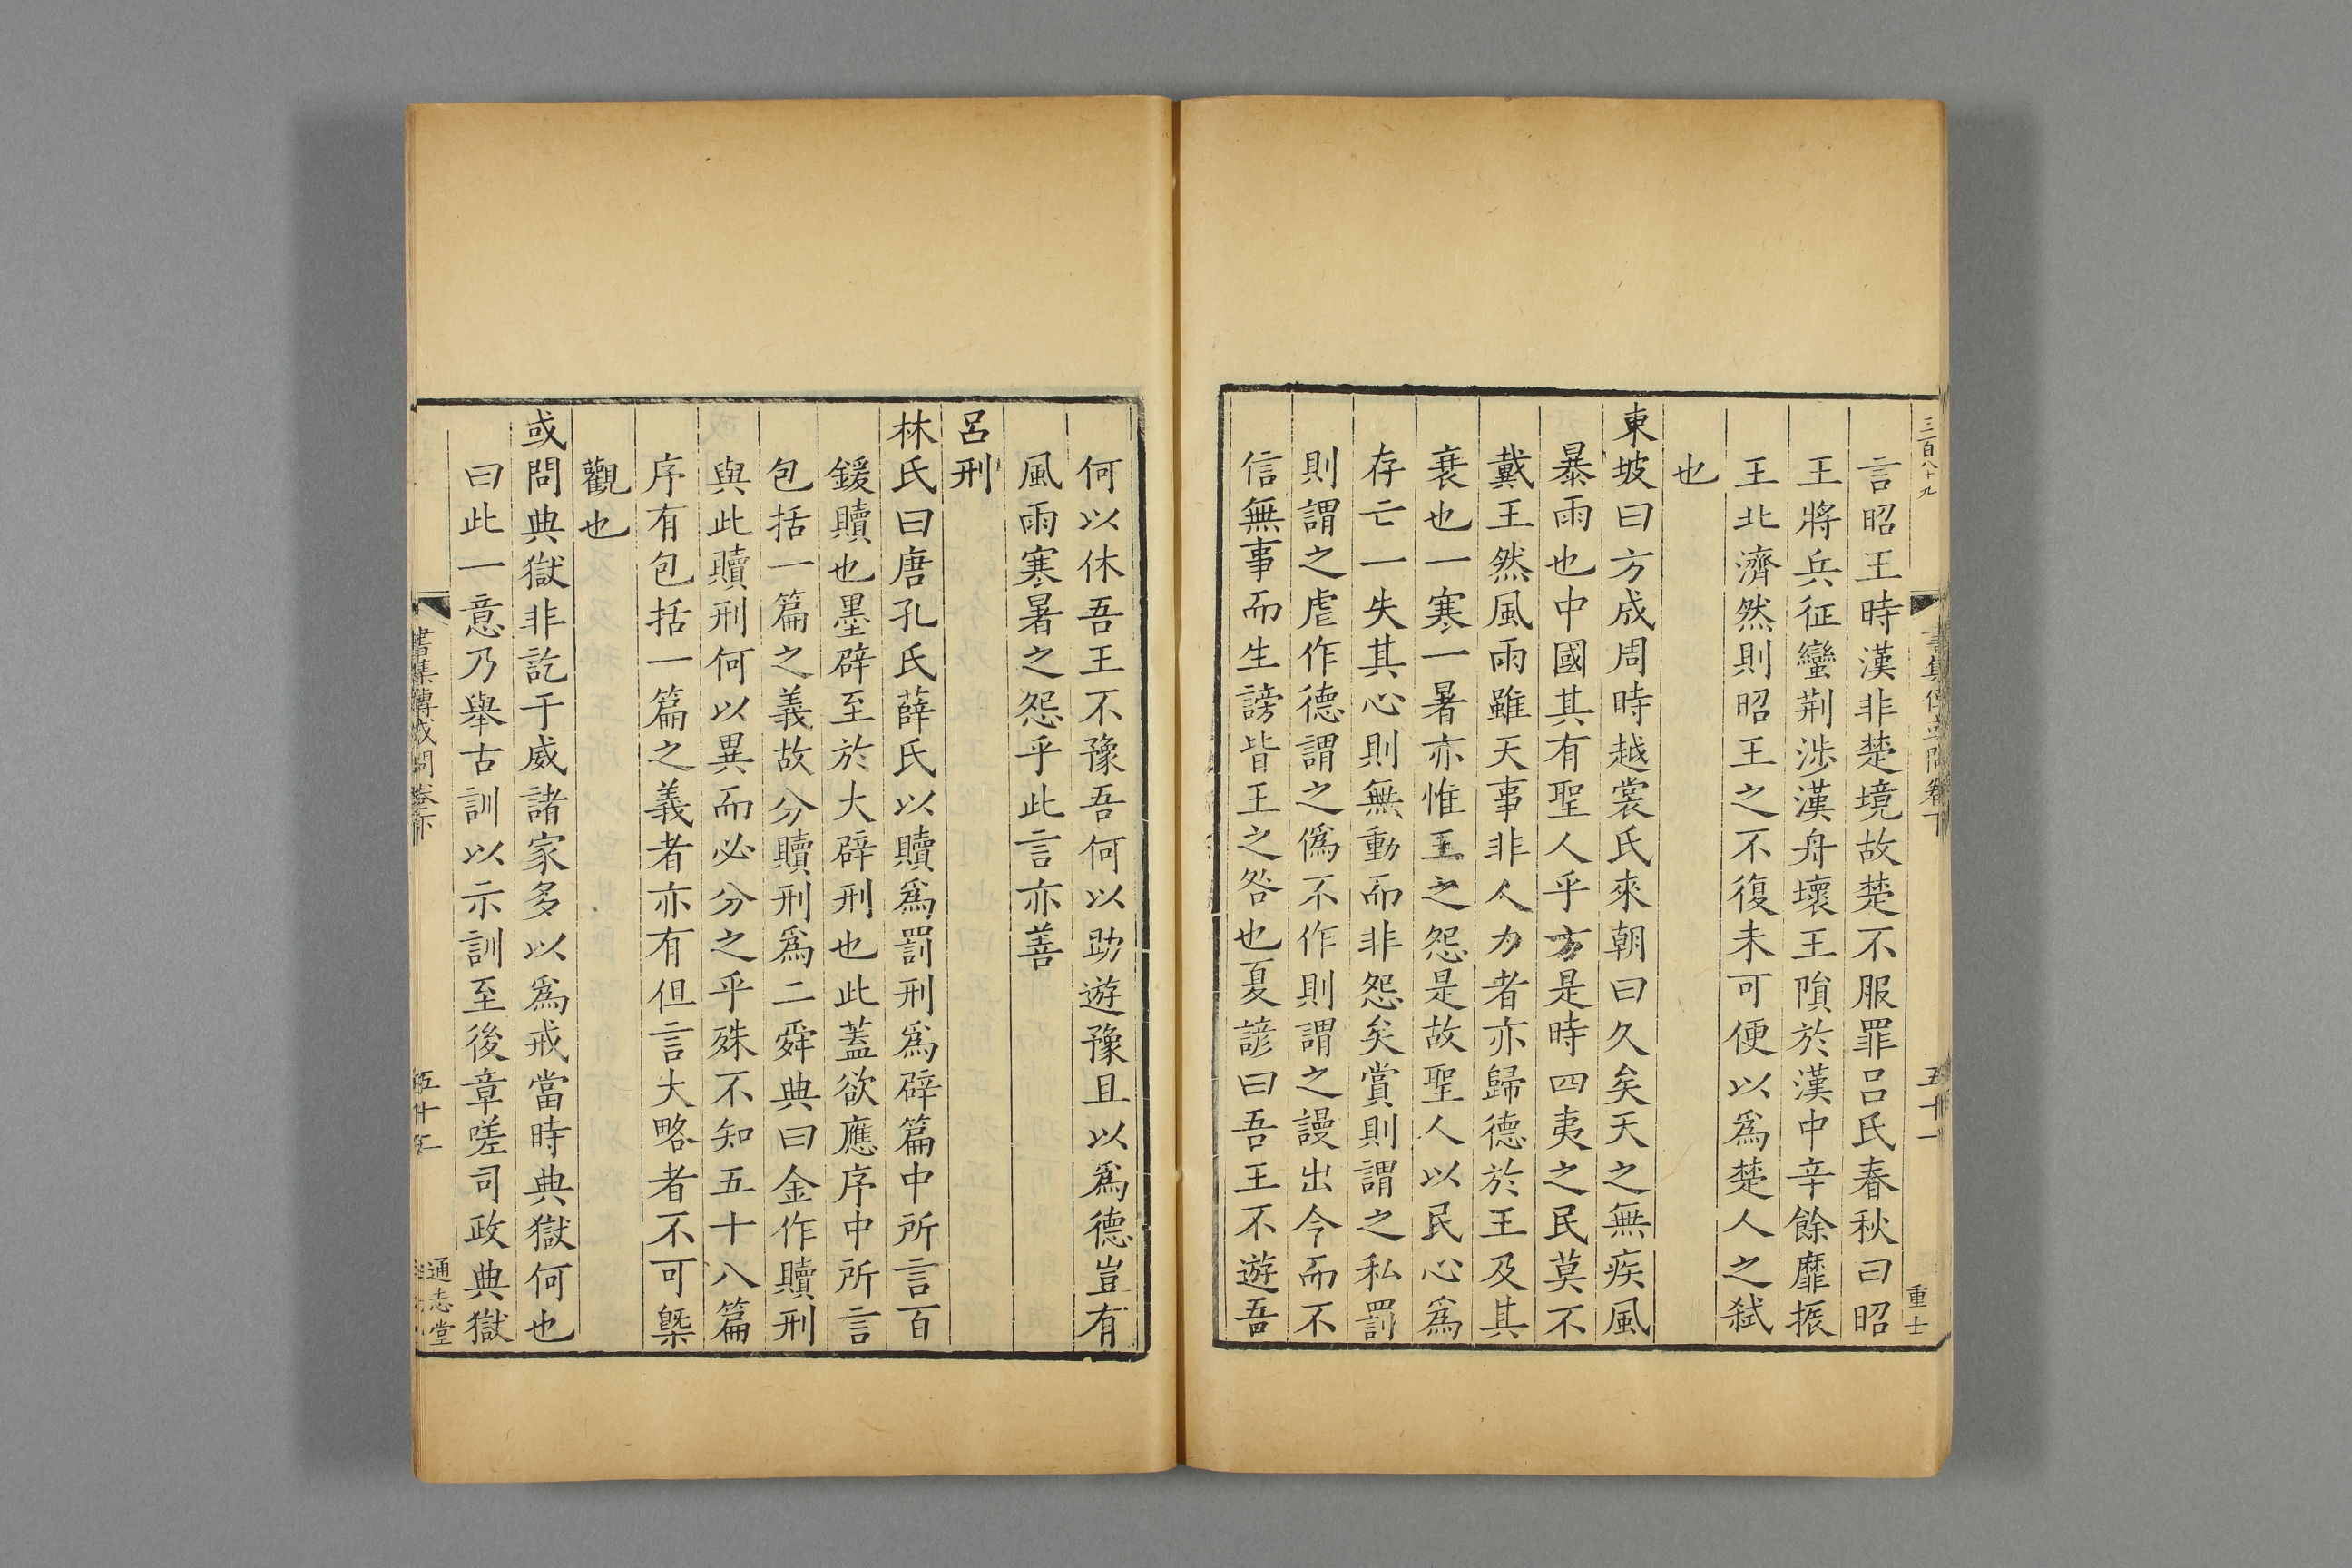 三百八十九
五十一
重士
言昭王時漢非楚境故楚不服罪呂氏春秋曰昭
王將兵征蠻荆涉漢舟壞王隕於漢中辛餘靡振
王北濟然則昭王之不復未可便以爲楚人之弑
也
東坡曰方成周時越裳氏來朝曰久矣天之無疾風
暴雨也中國其有聖人乎方是時四夷之民莫不
戴王然風雨雖天事非人力者亦歸德於王及其
衰也一寒一暑亦惟王之怨是故聖人以民心爲
存亡一失其心則無動而非怨矣賞則謂之私罰
則謂之虐作德謂之僞不作則謂之謾出令而不
信無事而生謗皆王之咎也夏諺曰吾王不遊吾
何以休吾王不豫吾何以助遊豫且以爲德豈有
風雨寒暑之怨乎此言亦善
呂刑
林氏曰唐孔氏薛氏以贖爲罰刑爲辟篇中所言百
鍰贖也墨辟至於大辟刑也此蓋欲應序中所言
包括一篇之義故分贖刑爲二舜典曰金作贖刑
與此贖刑何以異而必分之乎殊不知五十八篇
序有包括一篇之義者亦有但言大略者不可槩
觀也
或問典獄非訖于威諸家多以爲戒當時典獄何也
曰此一意乃舉古訓以示訓至後章嗟司政典獄
書集傳或問卷下
通志堂